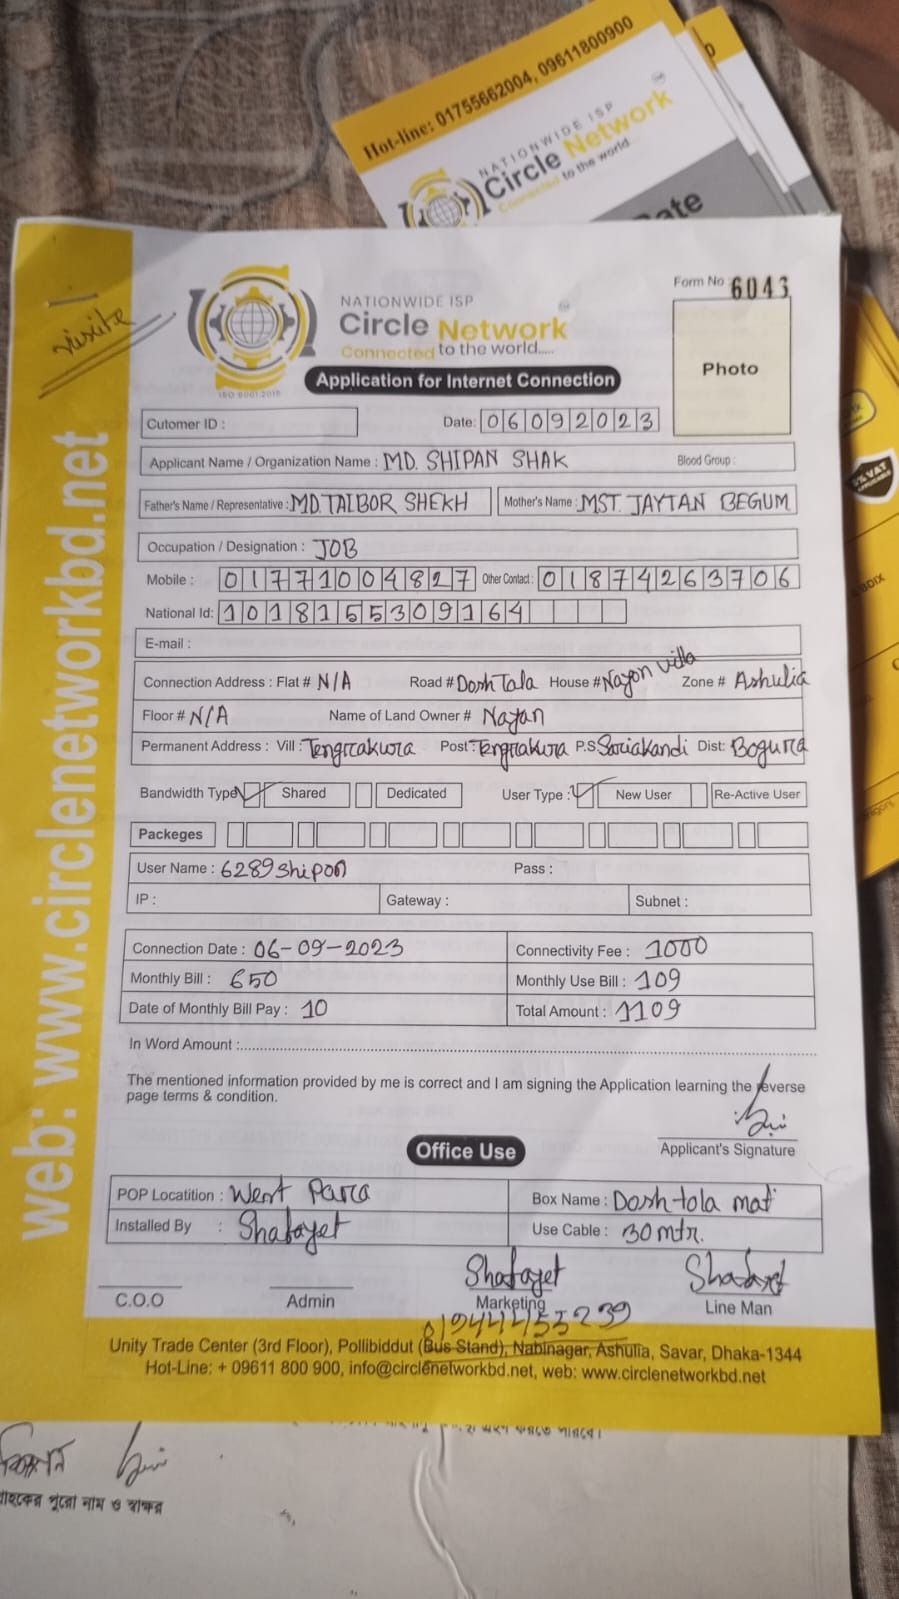 Hot-line: 01755662004, 09611800900
NATIONWIDE ISP
Circle Network
Connected to the world
web: www.circlenetworkbd.net
visite
NATIONWIDE ISP
Circle Network
Connected to the world.....
ISO 9001:2015
Form No 6043
Photo
Application for Internet Connection
Cutomer ID :
Date: 06092023
Applicant Name / Organization Name : MD. SHIPAN SHAK Blood Group :
Father's Name / Representative : MD. TALBOR SHEKH Mother's Name : MST. JAYTAN BEGUM
Occupation / Designation : JOB
Mobile : 01771004827 Other Contact : 01874263706
National Id: 1018155309164
E-mail :
Connection Address : Flat # N/A Road # Dosh Tala House # Nayon villa Zone # Ashulia
Floor # N/A Name of Land Owner # Nayan
Permanent Address : Vill : Tengrrakura Post : Tengrrakura P.S Soriakandi Dist: Bogura
Bandwidth Type Shared Dedicated User Type : New User Re-Active User
Packeges
User Name : 6289shipon Pass :
IP : Gateway : Subnet :
Connection Date : 06-09-2023 Connectivity Fee : 1000
Monthly Bill : 650 Monthly Use Bill : 109
Date of Monthly Bill Pay : 10 Total Amount : 1109
In Word Amount :
The mentioned information provided by me is correct and I am signing the Application learning the reverse
page terms & condition.
Applicant's Signature
Office Use
POP Locatition : West Para Box Name : Dosh tola mat
Installed By : Shafayet Use Cable : 30 mtr.
Shafayet Shafayet
C.O.O Admin Marketing Line Man
01944455239
Unity Trade Center (3rd Floor), Pollibiddut (Bus Stand), Nabinagar, Ashulia, Savar, Dhaka-1344
Hot-Line: + 09611 800 900, info@circlenetworkbd.net, web: www.circlenetworkbd.net
পুরো নাম ও স্বাক্ষর